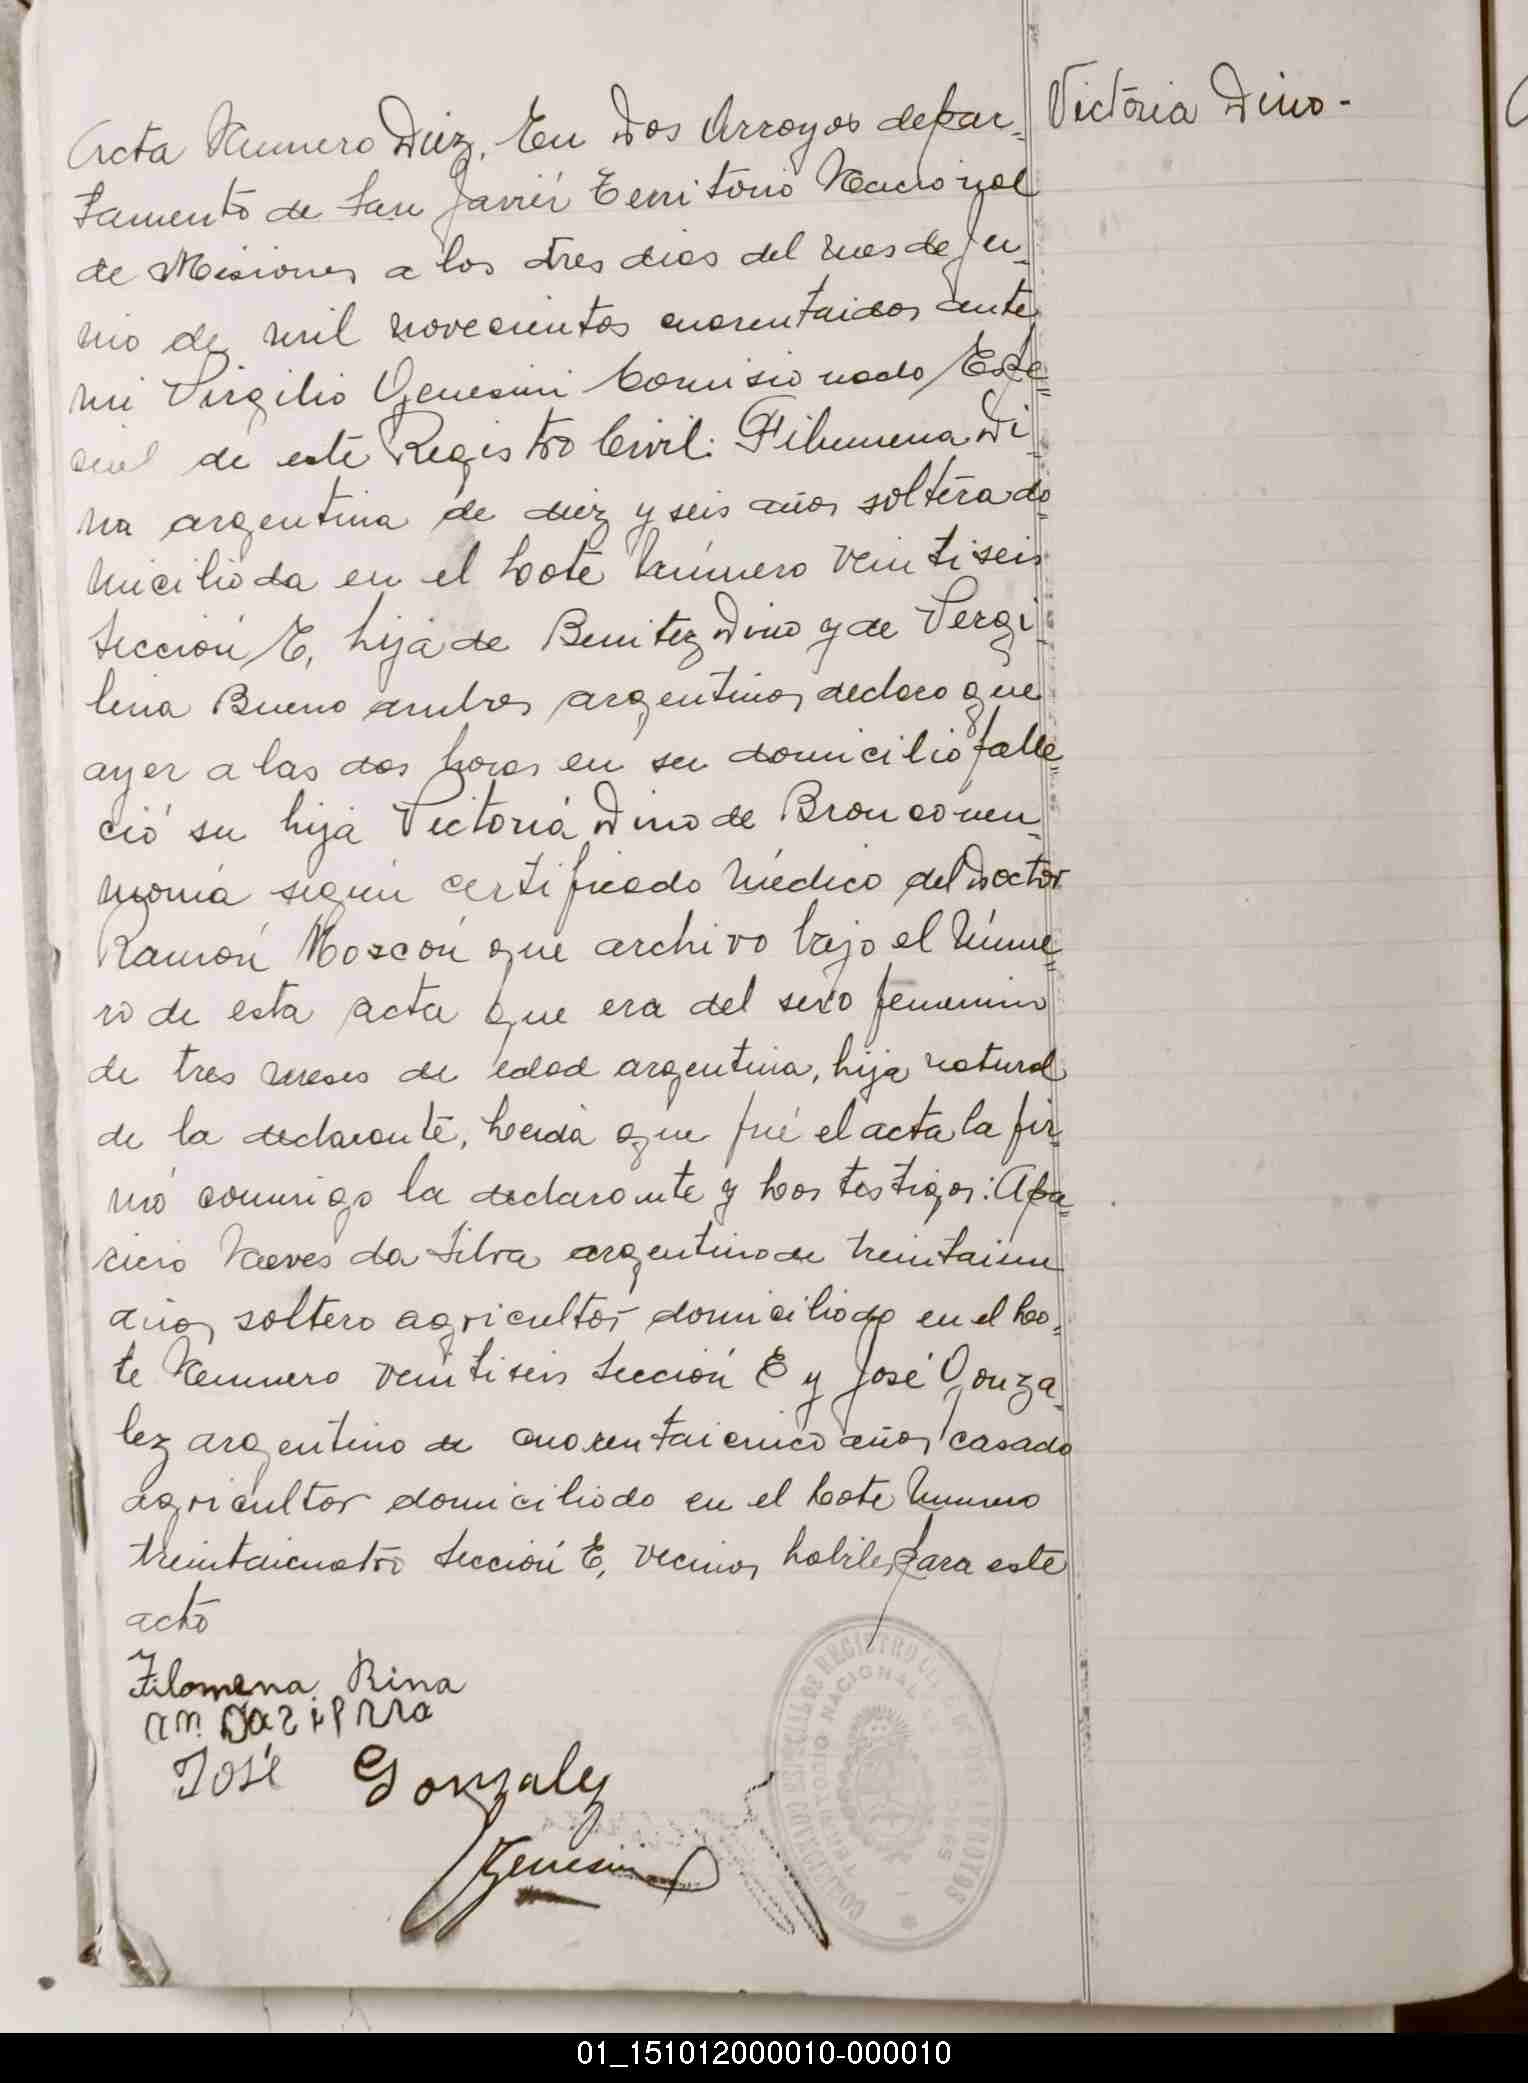 Acta Numero Diez. En Dos Arroyos depar-
Victoria Dino-
tamento de San Javier Territorio Nacional
de Misiones a los tres dias del mes de Ju-
nio de mil novecientos cuarentaidos ante
mi Virgilio Genesini Comisionado Espe=
cial de este Registro Civil: Filumena Di-
na argentina de diez y seis años soltera do-
miciliada en el Lote Número veintiseis
Sección E, hija de Benitez Dino y de Vergi-
lina Bueno ambos argentinos declaro que
ayer a las dos horas en su domicilio falle-
ció su hija Victoria Dino de Bronconeu-
monia según certificado Médico del Doctor
Ramón Moscón que archivo bajo el Núme=
ro de esta acta que era del sexo femenino
de tres meses de edad argentina, hija natural
de la declarante, Leida que fué el acta la fir-
mó conmigo la declarante y Los testigos: Apa=
ricio Neves da Silva argentino de treintaiun
años soltero agricultor domiciliado en el Lo-
te Numero veintiseis Sección E y José Gonza-
lez argentino de cuarentaicinco años casado
agricultor domiciliado en el Lote Numero
treintaicuatro Sección E, vecinos habiles para este
acto
Filomena Rina
José Gonzalez
Genesini
REGISTRO
TERRITORIO NACIONAL
01_151012000010-000010